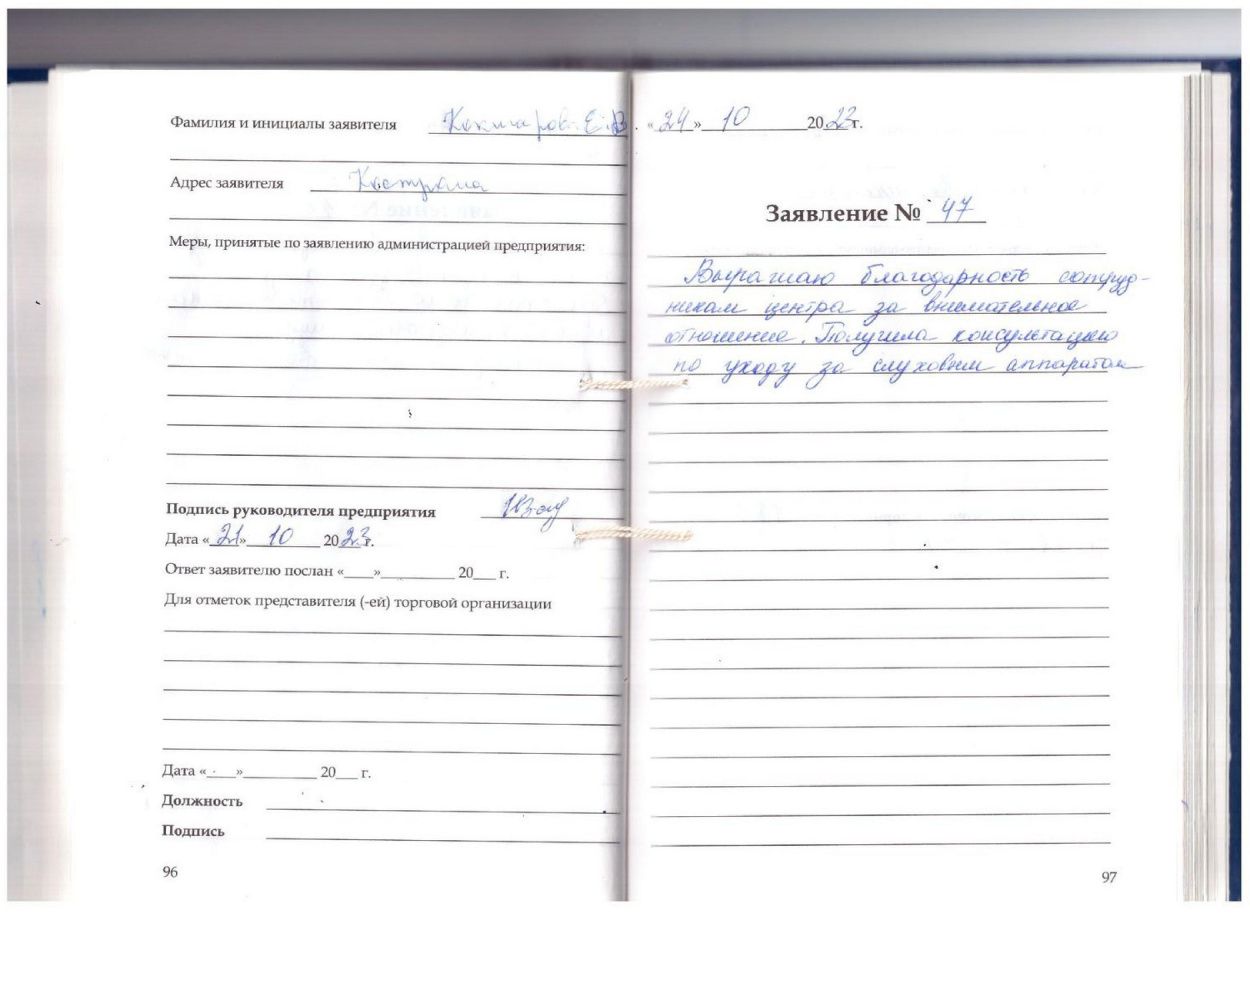 Фамилия и инициалы заявителя Кокшарова Е.В.
Адрес заявителя Кострома
Меры, принятые по заявлению администрацией предприятия:
Подпись руководителя предприятия
Дата «21» 10 2023 г.
Ответ заявителю послан «____»__________ 20___ г.
Для отметок представителя (-ей) торговой организации
Дата «____»__________ 20___ г.
Должность
Подпись
96
«24» 10 2023г.
Заявление № 47
Выражаю благодарность сотруд-
никам центра за внимательное
отношение. Получила консультацию
по уходу за слуховым аппаратом
97